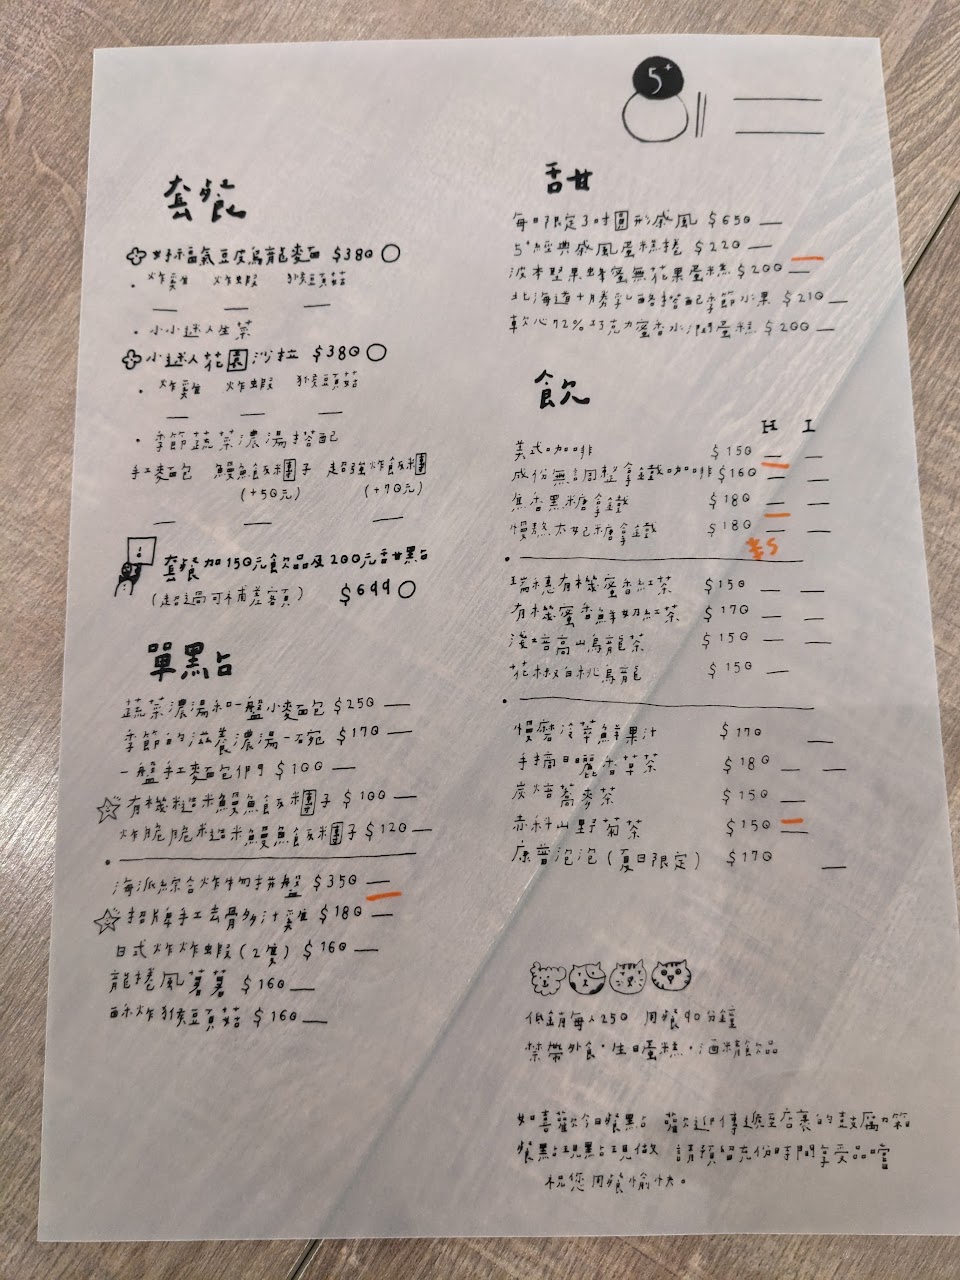 5+
套餐
好福氣豆皮烏龍麥面 $380
炸雞 炸蝦 猴豆頁菇
· 小小迷人生菜
小迷人花園沙拉 $380
· 炸雞 炸蝦 猴豆頁菇
· 季節蔬菜濃湯搭配
手工麥面包 鰻魚飯糰子 超強炸飯糰
(+50元) (+70元)
套餐加150元飲品及200元甜點
(超過可補差額) $699
單點
蔬菜濃湯和一盤小麥面包 $250
季節的滋養濃湯一碗 $170
一盤手工麥面包們 $100
有機糙米鰻魚飯糰子 $100
炸脆脆糙米鰻魚飯糰子 $120
海派綜合炸物拼盤 $350
招牌手工去骨多汁雞 $180
日式炸炸蝦(2隻) $160
龍捲風薯薯 $160
酥炸猴豆頁菇 $160
甜
每日限定3吋圓形戚風 $650
5+經典戚風蛋糕捲 $220
波本堅果蜂蜜無花果蛋糕 $200
北海道十勝乳酪搭配季節水果 $210
軟心72%巧克力蜜香水潤蛋糕 $200
飲
H I
美式咖啡 $150
成份無調整拿鐵咖啡 $160
焦香黑糖拿鐵 $180
慢熬太妃糖拿鐵 $180
瑞穗有機蜜香紅茶 $150
有機蜜香鮮奶紅茶 $170
淺焙高山烏龍茶 $150
花椒白桃烏龍 $150
慢磨冷萃鮮果汁 $170
手摘日曬香草茶 $180
炭焙蕎麥茶 $150
赤科山野菊茶 $150
康普泡泡(夏日限定) $170
低銷每人250 用餐90分鐘
禁帶外食·生日蛋糕·酒精飲品
如喜歡今日餐點 歡迎傳遞至店裏的豉腐力箱
餐點現點現做 請預留充份時間享受品嚐
祝您用餐愉快。